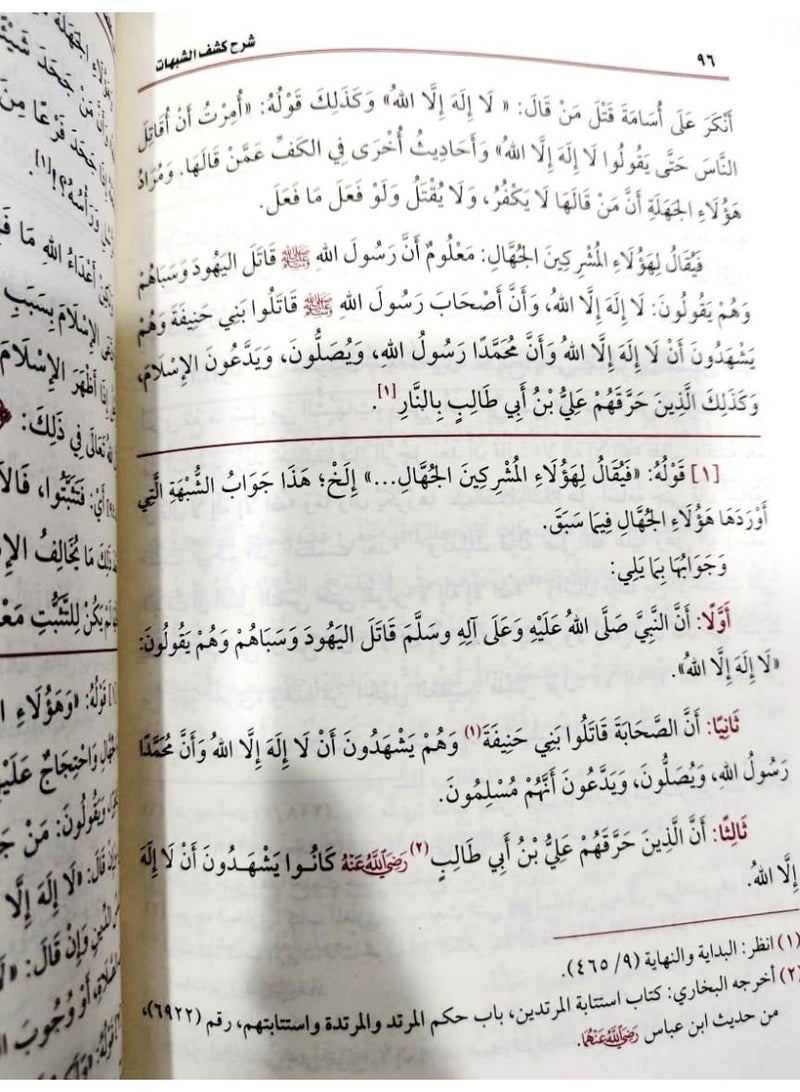 ٩٦
شرح كشف الشبهات
أَنْكَرَ عَلَى أُسَامَةَ قَتْلَ مَنْ قَالَ: «لَا إِلَهَ إِلَّا اللهُ» وَكَذَلِكَ قَوْلُهُ: «أُمِرْتُ أَنْ أُقَاتِلَ
النَّاسَ حَتَّى يَقُولُوا لَا إِلَهَ إِلَّا اللهُ» وَأَحَادِيثُ أُخْرَى فِي الكَفِّ عَمَّنْ قَالَهَا. وَمُرَادُ
هَؤُلَاءِ الجَهَلَةِ أَنَّ مَنْ قَالَهَا لَا يَكْفُرُ، وَلَا يُقْتَلُ وَلَوْ فَعَلَ مَا فَعَلَ.
فَيُقَالُ لِهَؤُلَاءِ المُشْرِكِينَ الجُهَّالِ: مَعْلُومٌ أَنَّ رَسُولَ اللهِ ﷺ قَاتَلَ اليَهُودَ وَسَبَاهُمْ
وَهُمْ يَقُولُونَ: لَا إِلَهَ إِلَّا اللهُ، وَأَنَّ أَصْحَابَ رَسُولِ اللهِ ﷺ قَاتَلُوا بَنِي حَنِيفَةَ وَهُمْ
يَشْهَدُونَ أَنْ لَا إِلَهَ إِلَّا اللهُ وَأَنَّ مُحَمَّدًا رَسُولُ اللهِ، وَيُصَلُّونَ، وَيَدَّعُونَ الإِسْلَامَ،
وَكَذَلِكَ الَّذِينَ حَرَّقَهُمْ عَلِيُّ بْنُ أَبِي طَالِبٍ بِالنَّارِ [١].
[١] قَوْلُهُ: «فَيُقَالُ لِهَؤُلَاءِ المُشْرِكِينَ الجُهَّالِ...» إِلَخْ؛ هَذَا جَوَابُ الشُّبْهَةِ الَّتِي
أَوْرَدَهَا هَؤُلَاءِ الجُهَّالِ فِيمَا سَبَقَ.
وَجَوَابُهَا بِمَا يَلِي:
أَوَّلًا: أَنَّ النَّبِيَّ صَلَّى اللهُ عَلَيْهِ وَعَلَى آلِهِ وسَلَّمَ قَاتَلَ اليَهُودَ وَسَبَاهُمْ وَهُمْ يَقُولُونَ:
«لَا إِلَهَ إِلَّا اللهُ».
ثَانِيًا: أَنَّ الصَّحَابَةَ قَاتَلُوا بَنِي حَنِيفَةَ (١) وَهُمْ يَشْهَدُونَ أَنْ لَا إِلَهَ إِلَّا اللهُ وَأَنَّ مُحَمَّدًا
رَسُولُ اللهِ، وَيُصَلُّونَ، وَيَدَّعُونَ أَنَّهُمْ مُسْلِمُونَ.
ثَالِثًا: أَنَّ الَّذِينَ حَرَّقَهُمْ عَلِيُّ بْنُ أَبِي طَالِبٍ (٢) رَضِيَ اللَّهُ عَنْهُ كَانُوا يَشْهَدُونَ أَنْ لَا إِلَهَ
إِلَّا اللهُ.
(١) انظر: البداية والنهاية (٩/ ٤٦٥).
(٢) أخرجه البخاري: كتاب استتابة المرتدين، باب حكم المرتد والمرتدة واستتابتهم، رقم (٦٩٢٢)،
من حديث ابن عباس رَضِيَ اللَّهُ عَنْهُمَا.